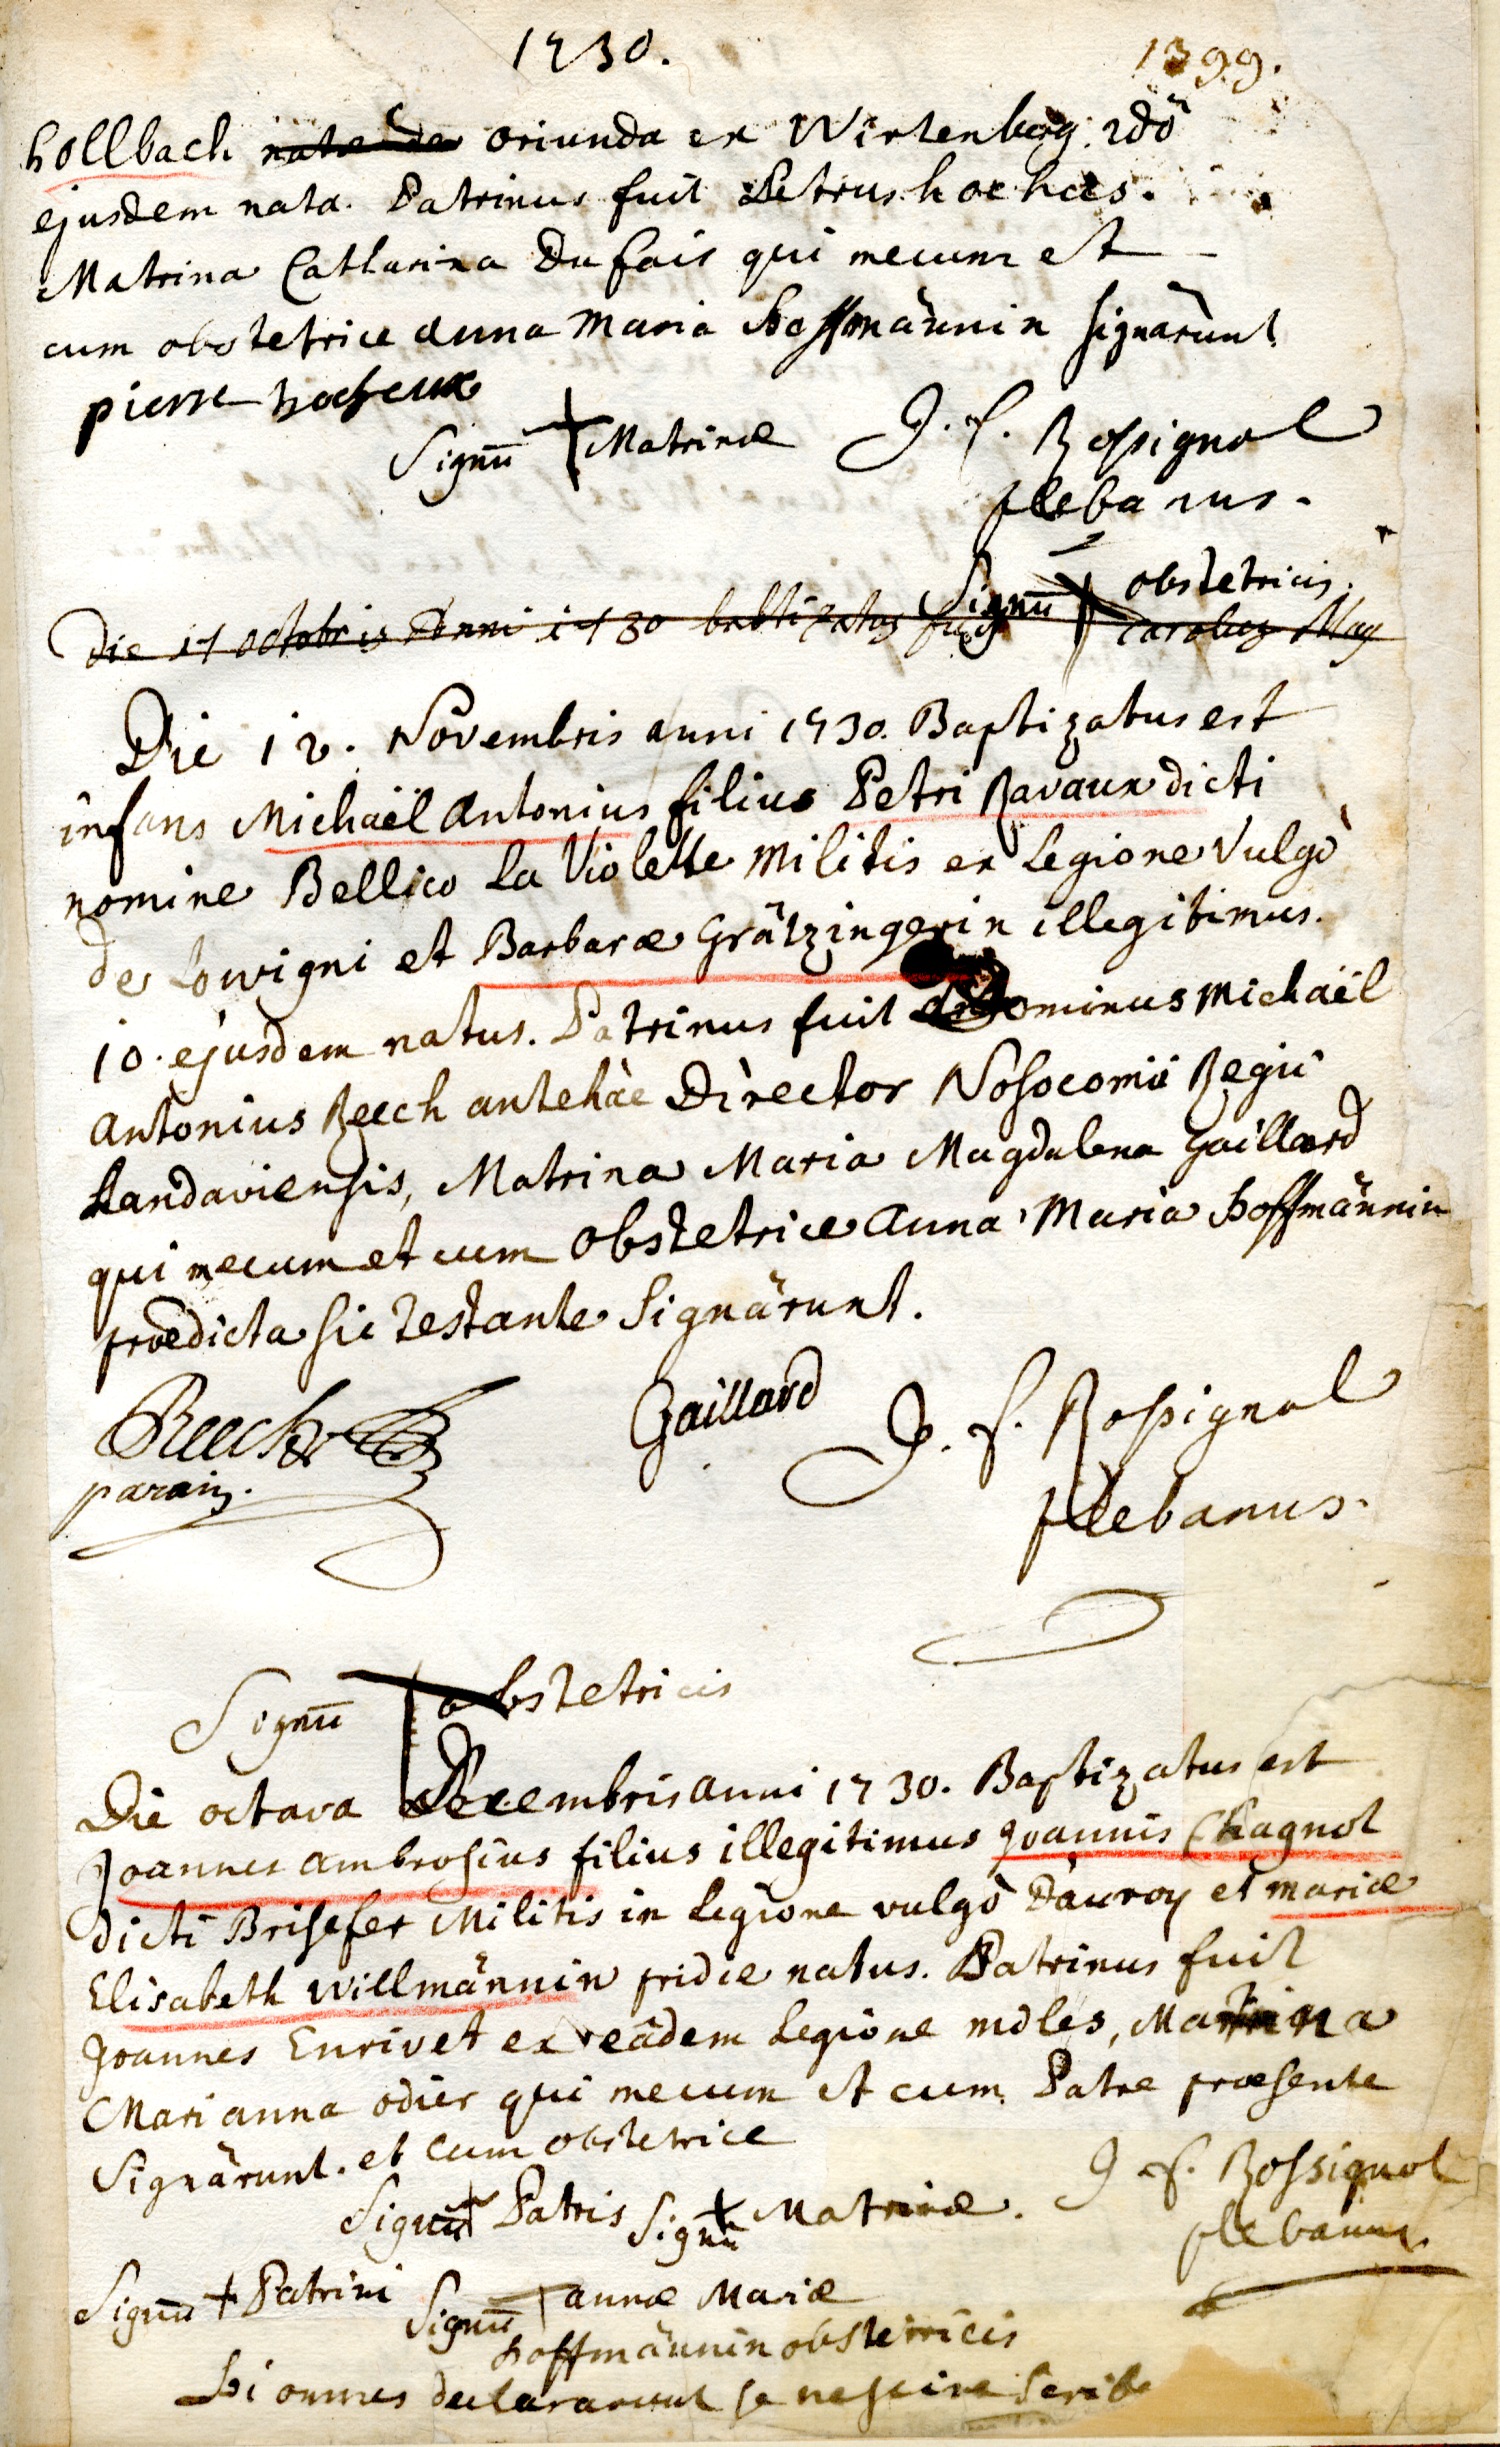 1730.
1399.
hollbach nata de oriunda ex Wirtenberg. 2dô
ejusdem nata. Patrinus fuit Petrus hocheés.
Matrina Catharina Dufais qui mecum et
cum obstetrice anna Maria Hoffmännin signârunt
pierre hocheux
Signū + Matrinæ J. f. Rossignol
plebanus.
Signū + obstetricis.
Die 17 octobris Anni 1730 babtizatus fuit carolus Mag
Die 12. Novembris anni 1730. Baptizatus est
infans Michaël Antonius filius Petri Ravaux dicti
nomine Bellico La Violette Militis ex Legione Vulgò
de Lowigni et Barbaræ Grätzingerin illegitimus.
10. ejusdem natus. Patrinus fuit Dominus Michaël
Antonius Reech antehàc Dìrector Nosocomii Regii
Landaviensis, Matrina Maria Magdalena Gaillard
qui mecum et cum Obstetrice Anna Maria Hoffmännin
prædicta sic testante Signârunt.
Reech
parain.
Gaillard
J. f. Rossignol
plebanus.
Signū + obstetricis
Die octava Decembris anni 1730. Baptizatus est
Joannes Ambrosius filius illegitimus Joannis Chagnol
dicti Brisefer Militis in Legione vulgò Dauroy et Mariæ
Elisabeth Willmännin pridie natus. Patrinus fuit
Joannes Enrivet ex eâdem Legione mdles, Matrina
Marianna odier qui mecum et cum Patre præsente
Signârunt. et cum obstetrice
Signū + Patris Signū + Matrinæ. J f. Rossignol
plebanus.
Signū + Patrini Signū + annæ Mariæ
hoffmännin obstetricis
hi omnes declararunt se nescire scribe